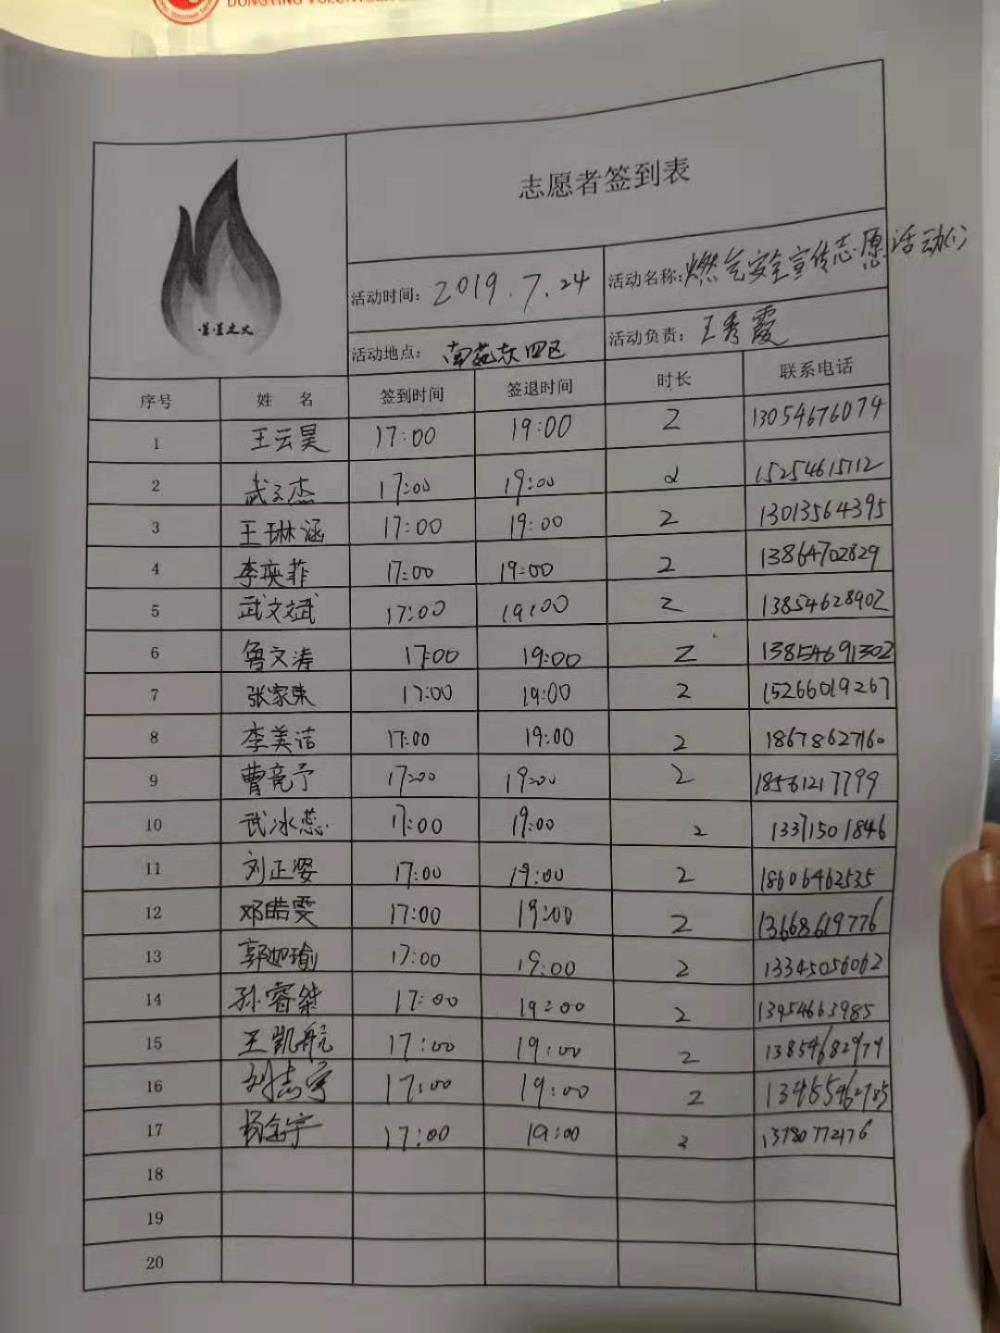 志愿者签到表
活动时间: 2019.7.24 活动名称: 燃气安全宣传志愿活动(一)
活动地点: 南苑东四区 活动负责: 王秀霞
星星之火
序号 姓 名 签到时间 签退时间 时长 联系电话
1 王云昊 17:00 19:00 2 13054676074
2 武文杰 17:00 19:00 2 15254615112
3 王琳涵 17:00 19:00 2 13013564395
4 李奕菲 17:00 19:00 2 13864702829
5 武文斌 17:00 19:00 2 13854628902
6 鲁文涛 17:00 19:00 2 13854691302
7 张家荣 17:00 19:00 2 15266019267
8 李美洁 17:00 19:00 2 18678627160
9 曹亮予 17:00 19:00 2 18561217799
10 武冰蕊 17:00 19:00 2 13371501846
11 刘正 17:00 19:00 2 18606462535
12 邓皓雯 17:00 19:00 2 13668619776
13 郭如瑜 17:00 19:00 2 13345056062
14 孙睿桀 17:00 19:00 2 13954663985
15 王凯航 17:00 19:00 2 13854682979
16 刘志宇 17:00 19:00 2
17 杨金宇 17:00 19:00 2
18
19
20